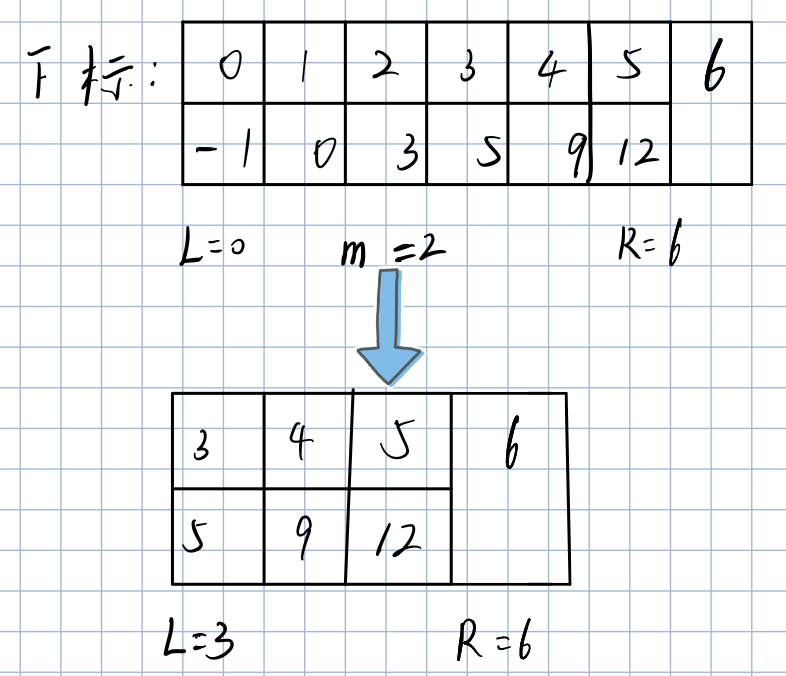 下标: 0 1 2 3 4 5 6
-1 0 3 5 9 12
L=0 m=2 R=6
3 4 5 6
5 9 12
L=3 R=6